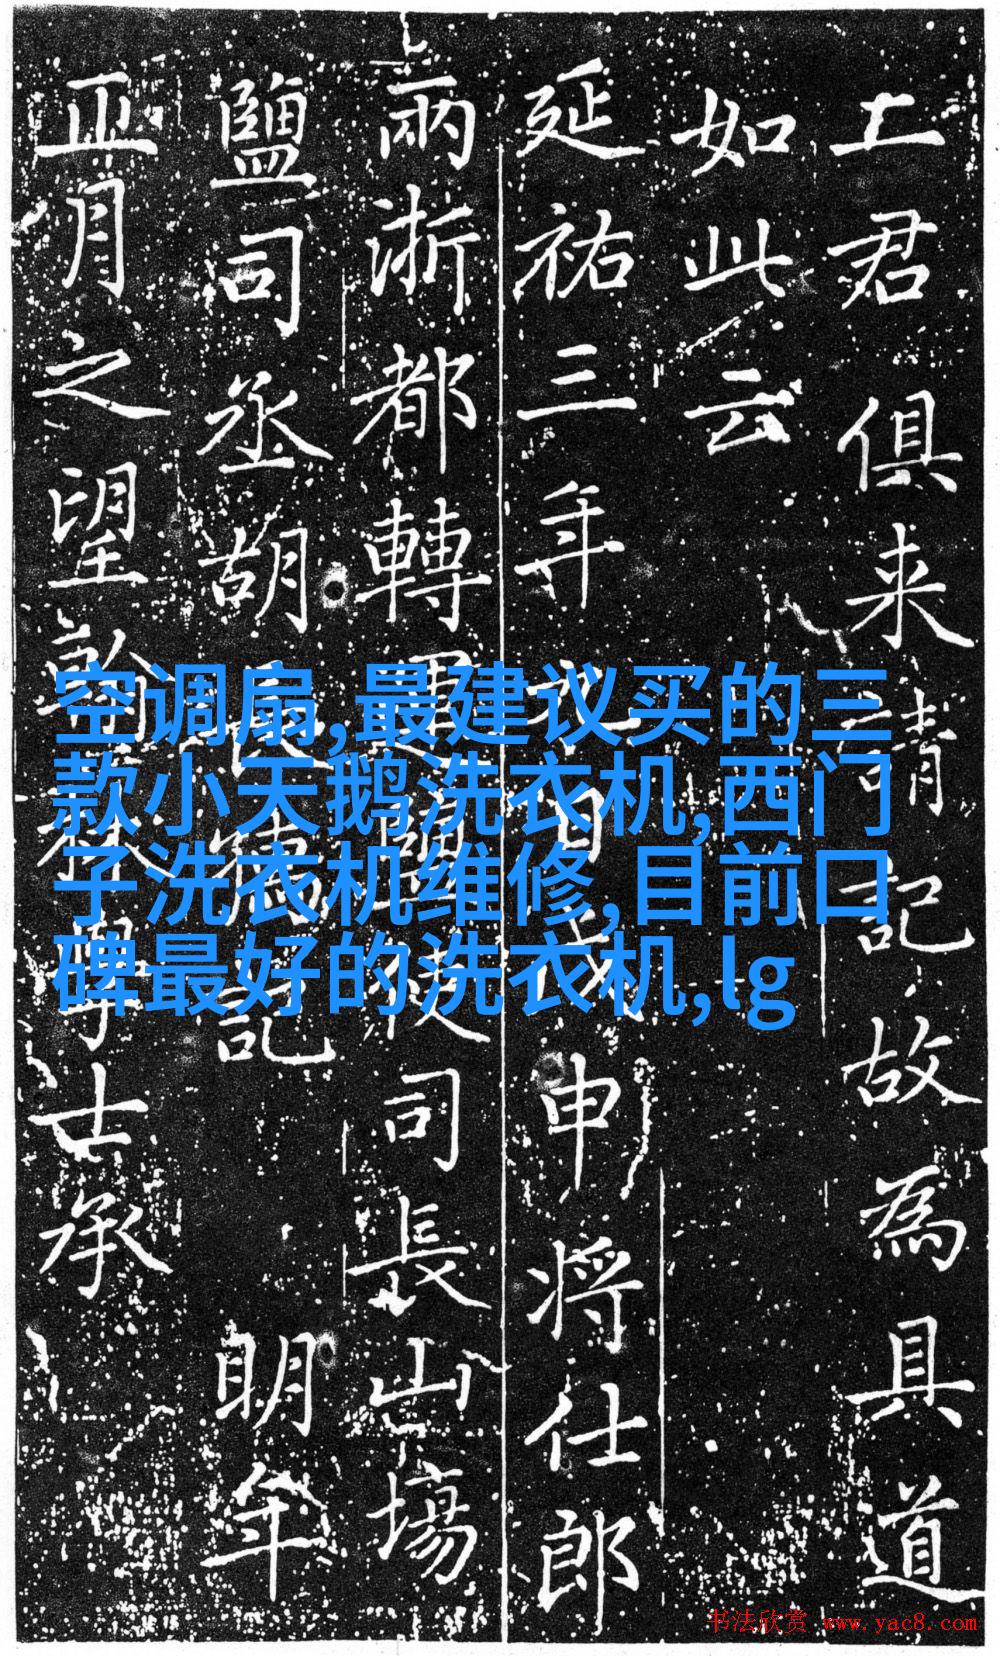 工君俱来請記故為具道
如此云
延祐三年申将仕郎
兩浙都轉運鹽使司長山場
鹽司丞胡長孺記 明年
正月之望士承
空调扇,最建议买的三
款小天鹅洗衣机,西门
子洗衣机维修,目前口
碑最好的洗衣机,lg
书法欣赏 www.yac8.com